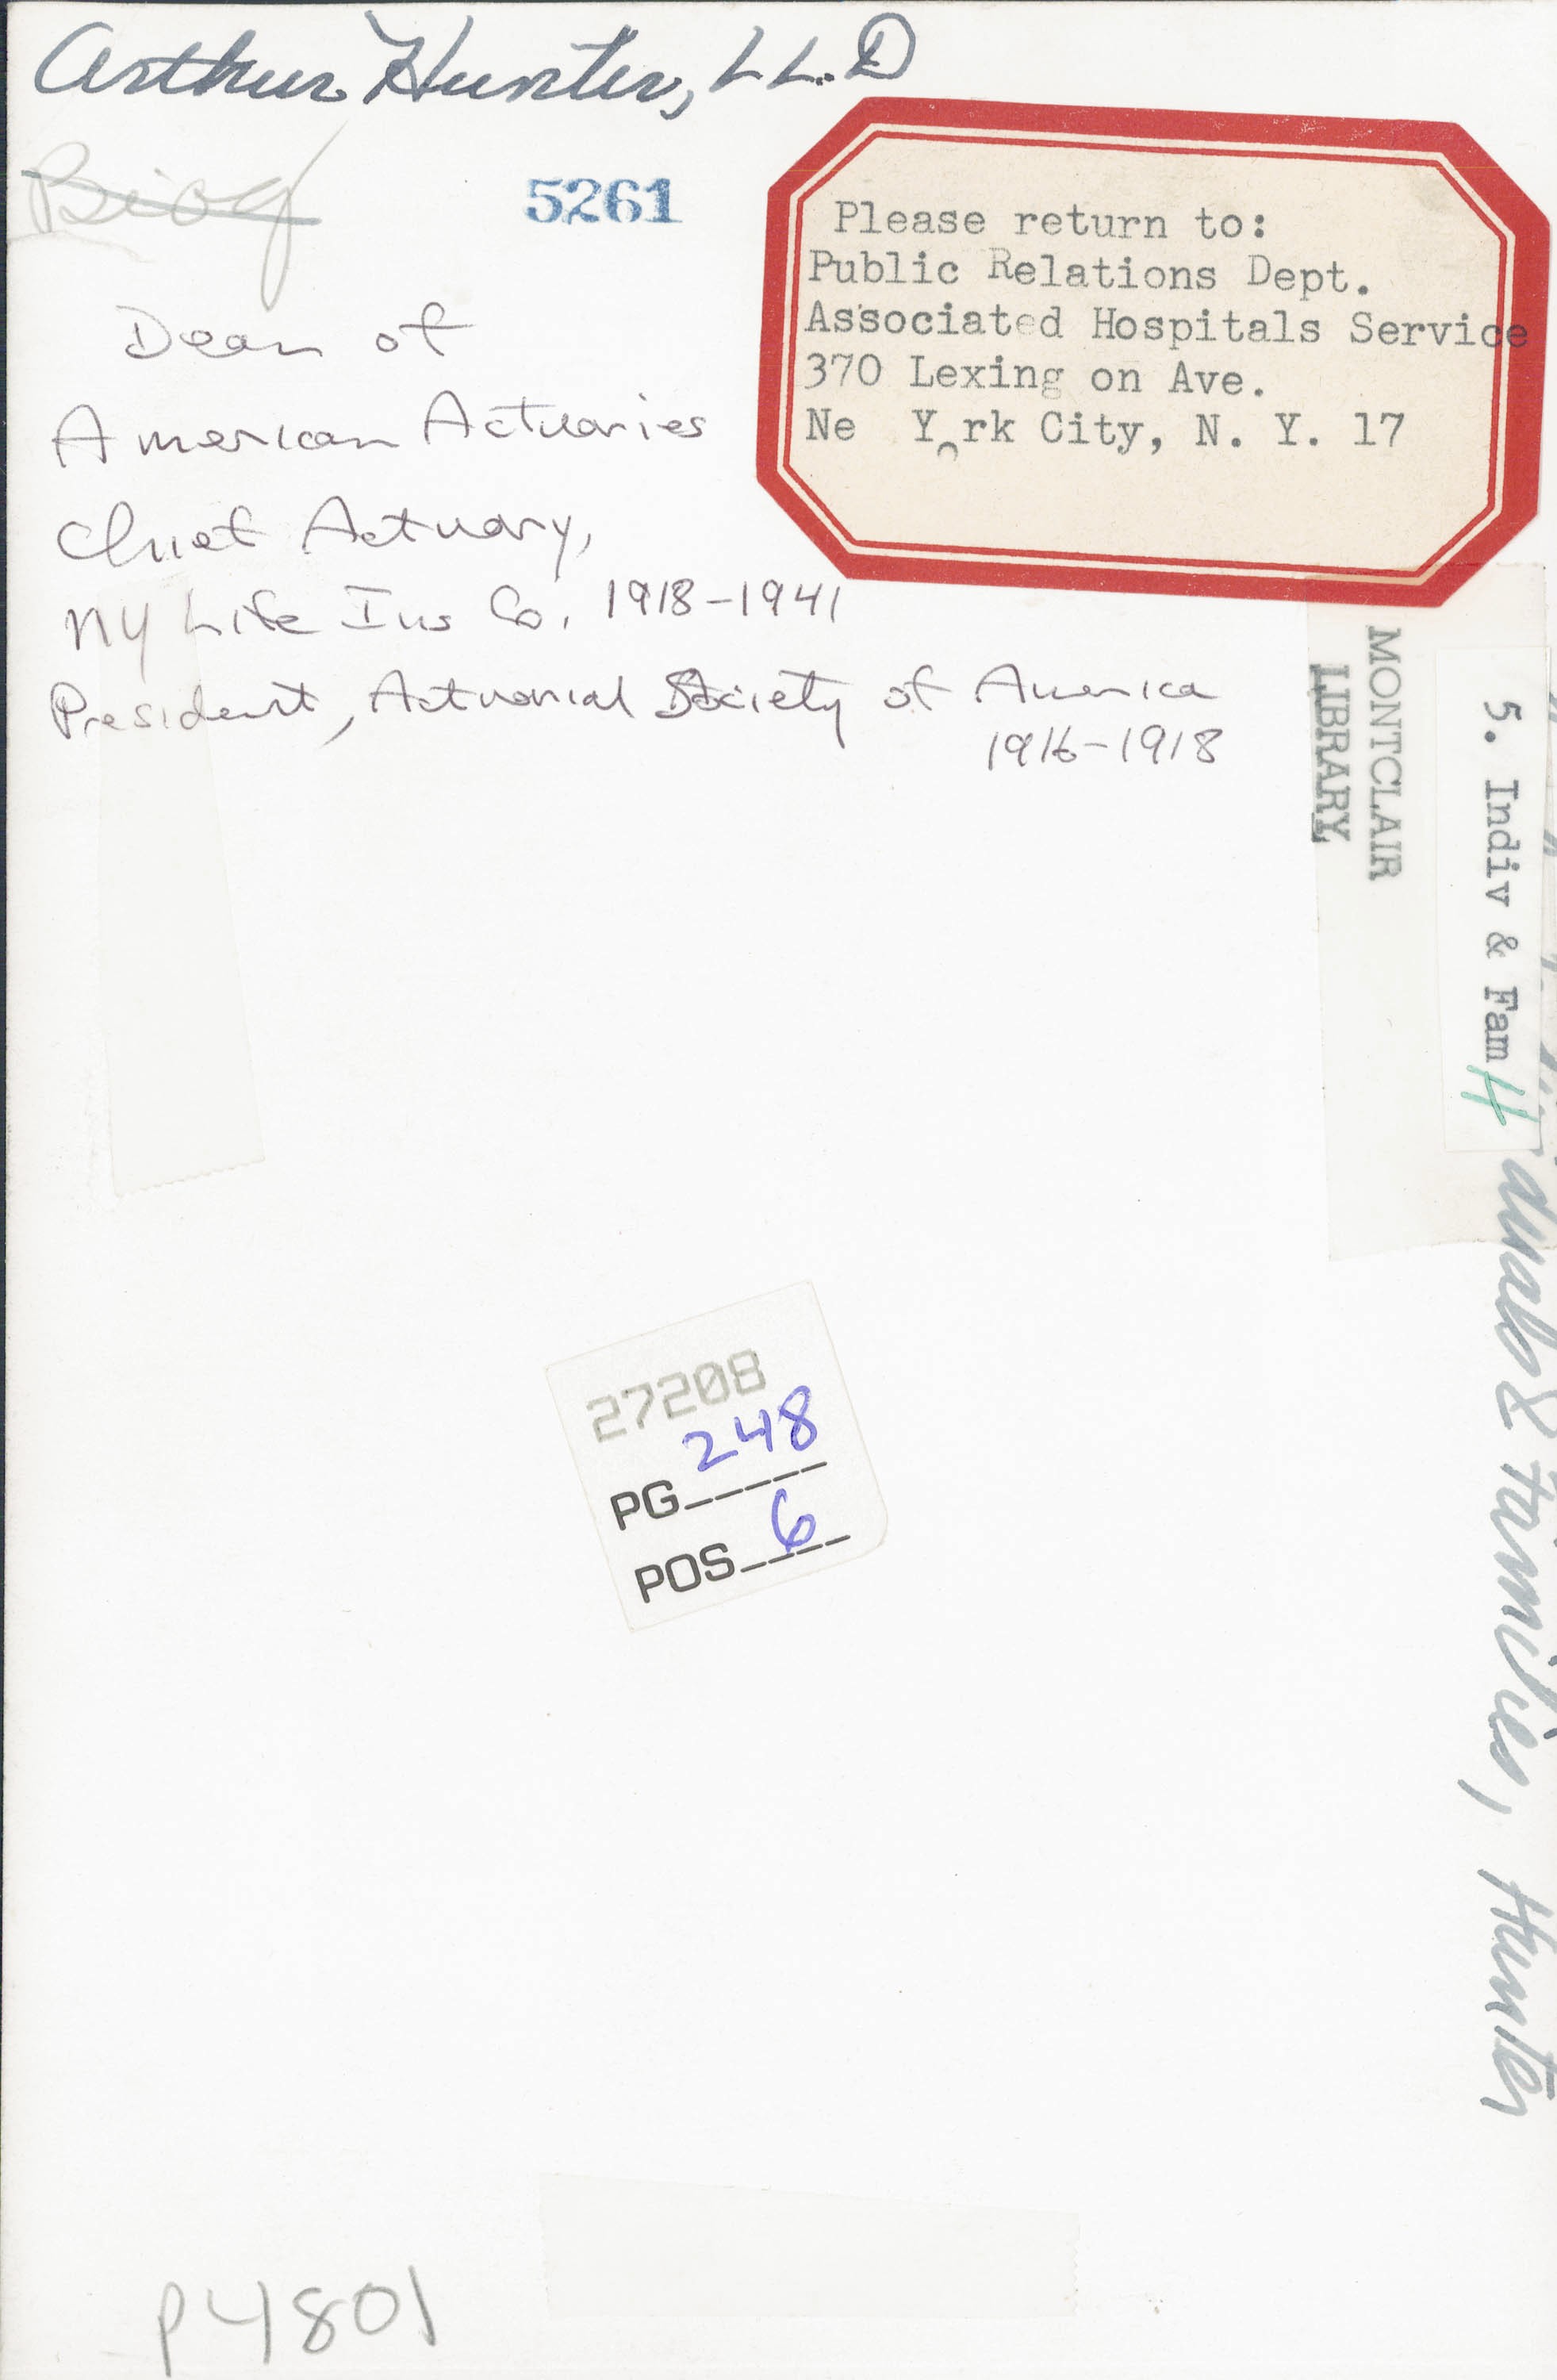 Arthur Hunter, LL.D
Biog
5261
Please return to:
Public Relations Dept.
Associated Hospitals Service
370 Lexing on Ave.
Ne Y rk City, N. Y. 17
Dean of
American Actuaries
Chief Actuary,
NY Life Ins Co. 1918-1941
President, Actuarial Society of America
1916-1918
MONTCLAIR
LIBRARY
5. Indiv & Fam H
duals & Families, Hunter
27208
PG 248
POS 6
P4801